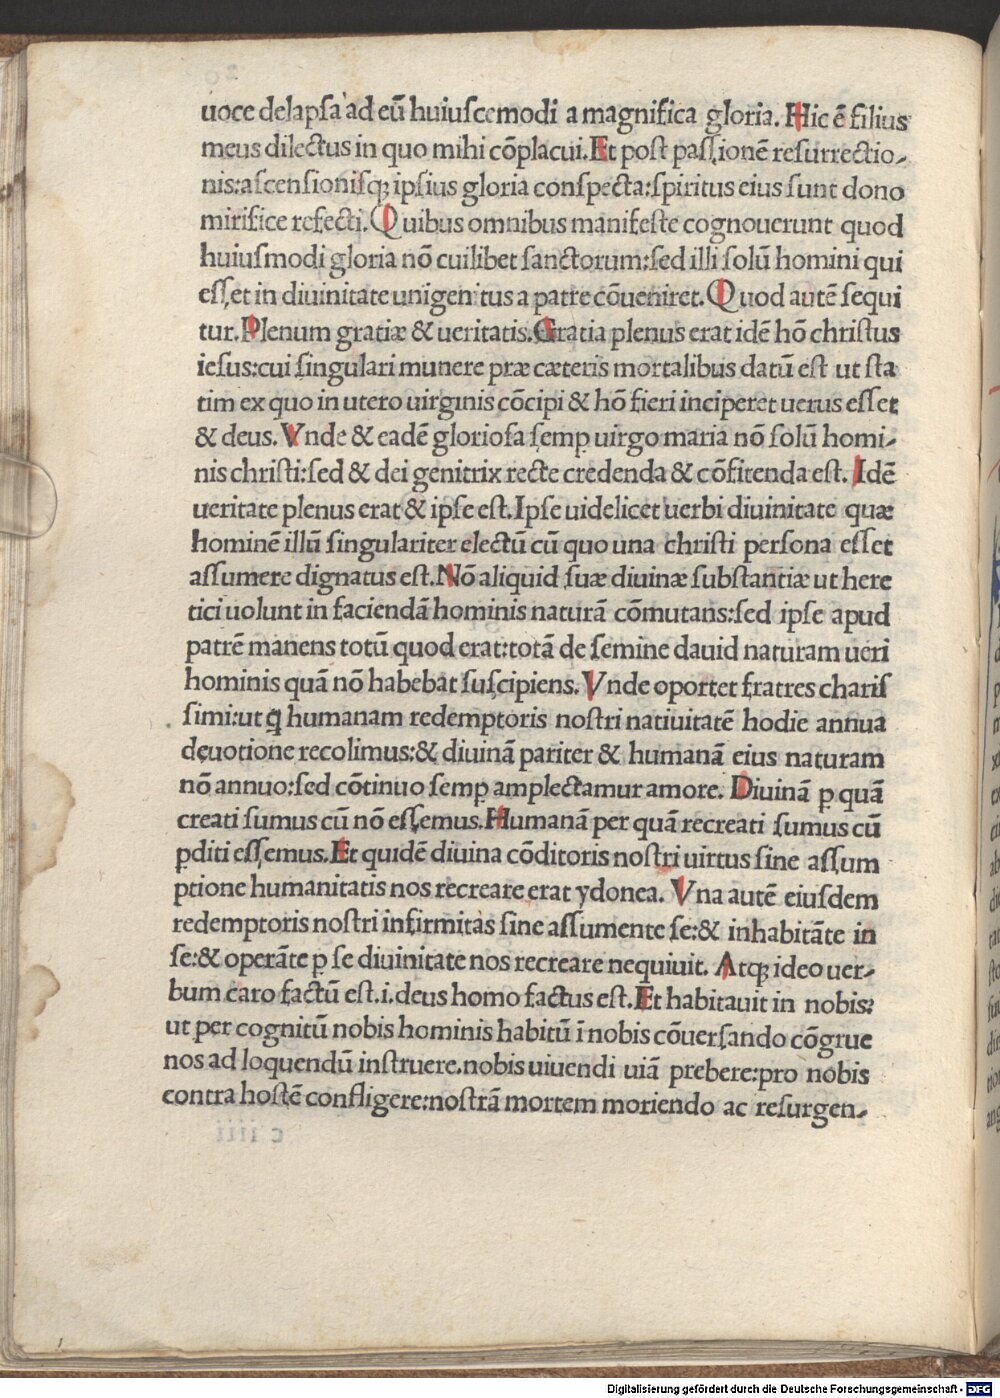 uoce delapſa ad eū huiuſcemodi a magnifica gloria. Hic ē filius
meus dilectus in quo mihi cōplacui. Et poſt paſſionē reſurrectio-
nis: aſcenſioniſq; ipſius gloria conſpecta: ſpiritus eius ſunt dono
mirifice refecti. Quibus omnibus manifeſte cognouerunt quod
huiuſmodi gloria nō cuilibet ſanctorum: ſed illi ſolū homini qui
eſſet in diuinitate unigenitus a patre cōueniret. Quod autē ſequi
tur. Plenum gratiæ & ueritatis. Gratia plenus erat idē hō chriſtus
ieſus: cui ſingulari munere præ cæteris mortalibus datū eſt ut ſta
tim ex quo in utero uirginis cōcipi & hō fieri inciperet uerus eſſet
& deus. Vnde & eadē glorioſa ſemꝑ uirgo maria nō ſolū homi-
nis chriſti: ſed & dei genitrix recte credenda & cōfitenda eſt. Idē
ueritate plenus erat & ipſe eſt. Ipſe uidelicet uerbi diuinitate quæ
hominē illū ſingulariter electū cū quo una chriſti perſona eſſet
aſſumere dignatus eſt. Nō aliquid ſuæ diuinæ ſubſtantiæ ut here
tici uolunt in faciendā hominis naturā cōmutans: ſed ipſe apud
patrē manens totū quod erat: totā de ſemine dauid naturam ueri
hominis quā nō habebat ſuſcipiens. Vnde oportet fratres chariſ
ſimi: ut ꝗ humanam redemptoris noſtri natiuitatē hodie annua
deuotione recolimus: & diuinā pariter & humanā eius naturam
nō annuo: ſed cōtinuo ſemꝑ amplectamur amore. Diuinā ꝑ quā
creati ſumus cū nō eſſemus. Humanā per quā recreati ſumus cū
ꝑditi eſſemus. Et quidē diuina cōditoris noſtri uirtus ſine aſſum
ptione humanitatis nos recreare erat ydonea. Vna autē eiuſdem
redemptoris noſtri infirmitas ſine aſſumente ſe: & inhabitāte in
ſe: & operāte ꝑ ſe diuinitate nos recreare nequiuit. Atq; ideo uer-
bum caro factū eſt. i. deus homo factus eſt. Et habitauit in nobis:
ut per cognitū nobis hominis habitū ī nobis cōuerſando cōgrue
nos ad loquendū inſtruere. nobis uiuendi uiā prebere: pro nobis
contra hoſtē confligere: noſtrā mortem moriendo ac reſurgen-
Digitalisierung gefördert durch die Deutsche Forschungsgemeinschaft - DFG